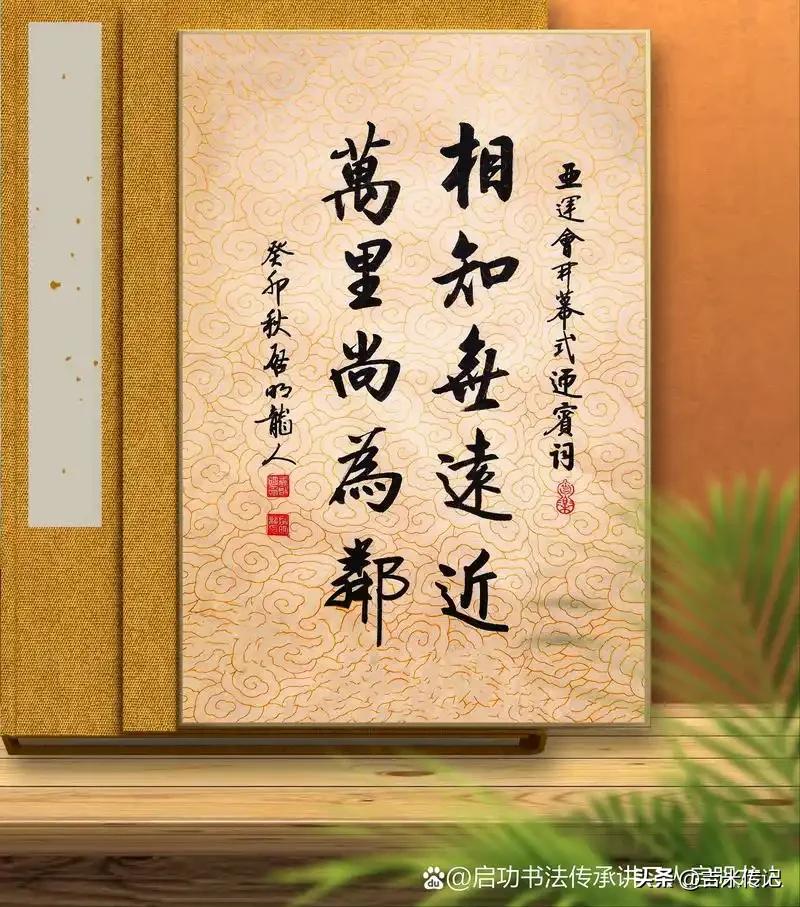 亞運會開幕式迎賓詞
相知無遠近
萬里尚為鄰
癸卯秋啟明龍人
@启功书法传承讲
头条 @吉米传记